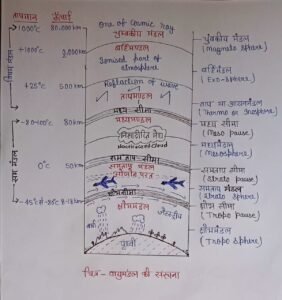 तापमान ऊँचाई
+1000°C 80,000km
+1000°C 2,000km
+25°C 500km
-80-100°C 80km
0°C 50km
-45°C से -85°C 8-18km
विषम मंडल
सम मंडल
One of Cosmic ray
चुम्बकीय मंडल
बहिर्मण्डल
Ionised part of
atmosphere
Reflection of wave
तापमण्डल
मध्य सीमा
मध्यमण्डल
निशादीप्ति मेघ
Noctilucent cloud
समताप सीमा
समताप मंडल
ओजोन परत
क्षोभसीमा
क्षोभमण्डल
वर्षा
जेटस्ट्रीम
पृथ्वी
चुंबकीय मंडल
(Magneto sphere)
बहिर्मंडल
(Exo-sphere)
ताप या आयनमंडल
(Thermo or Inosphere)
मध्य सीमा
(Meso pause)
मध्यमंडल
(Mesosphere)
समताप सीमा
(Strato pause)
समताप मंडल
(Strato sphere)
क्षोभ सीमा
(Tropo pause)
क्षोभमंडल
(Troposphere)
चित्र- वायुमंडल की संरचना